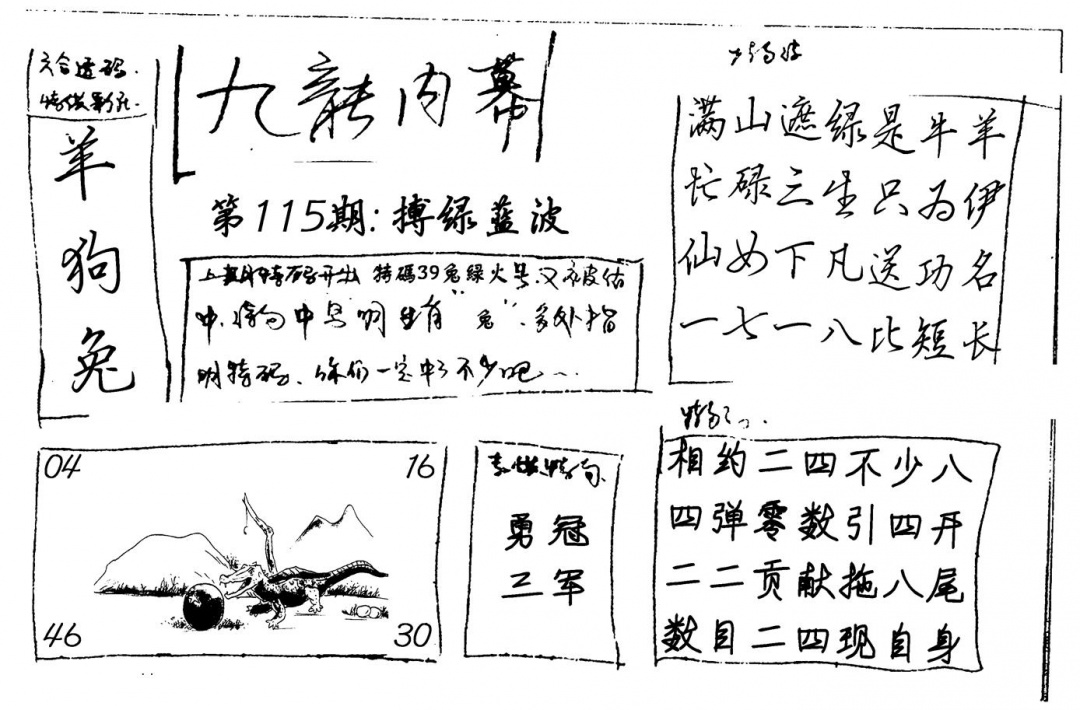 六合透码.
羊
狗
兔
九龍内幕
第115期:搏绿蓝波
上期特码开出 特碼39兔绿火号.又被估
中.特句中号明生肖"兔".多处指
明特码.你们一定中了不少吧...
满山遮绿是牛羊
忙碌三生只为伊
仙女下凡送功名
一七一八比短长
04
16
46
30
勇冠
三军
相约二四不少八
四弹零数引四开
二二贡献拖八尾
数目二四现自身